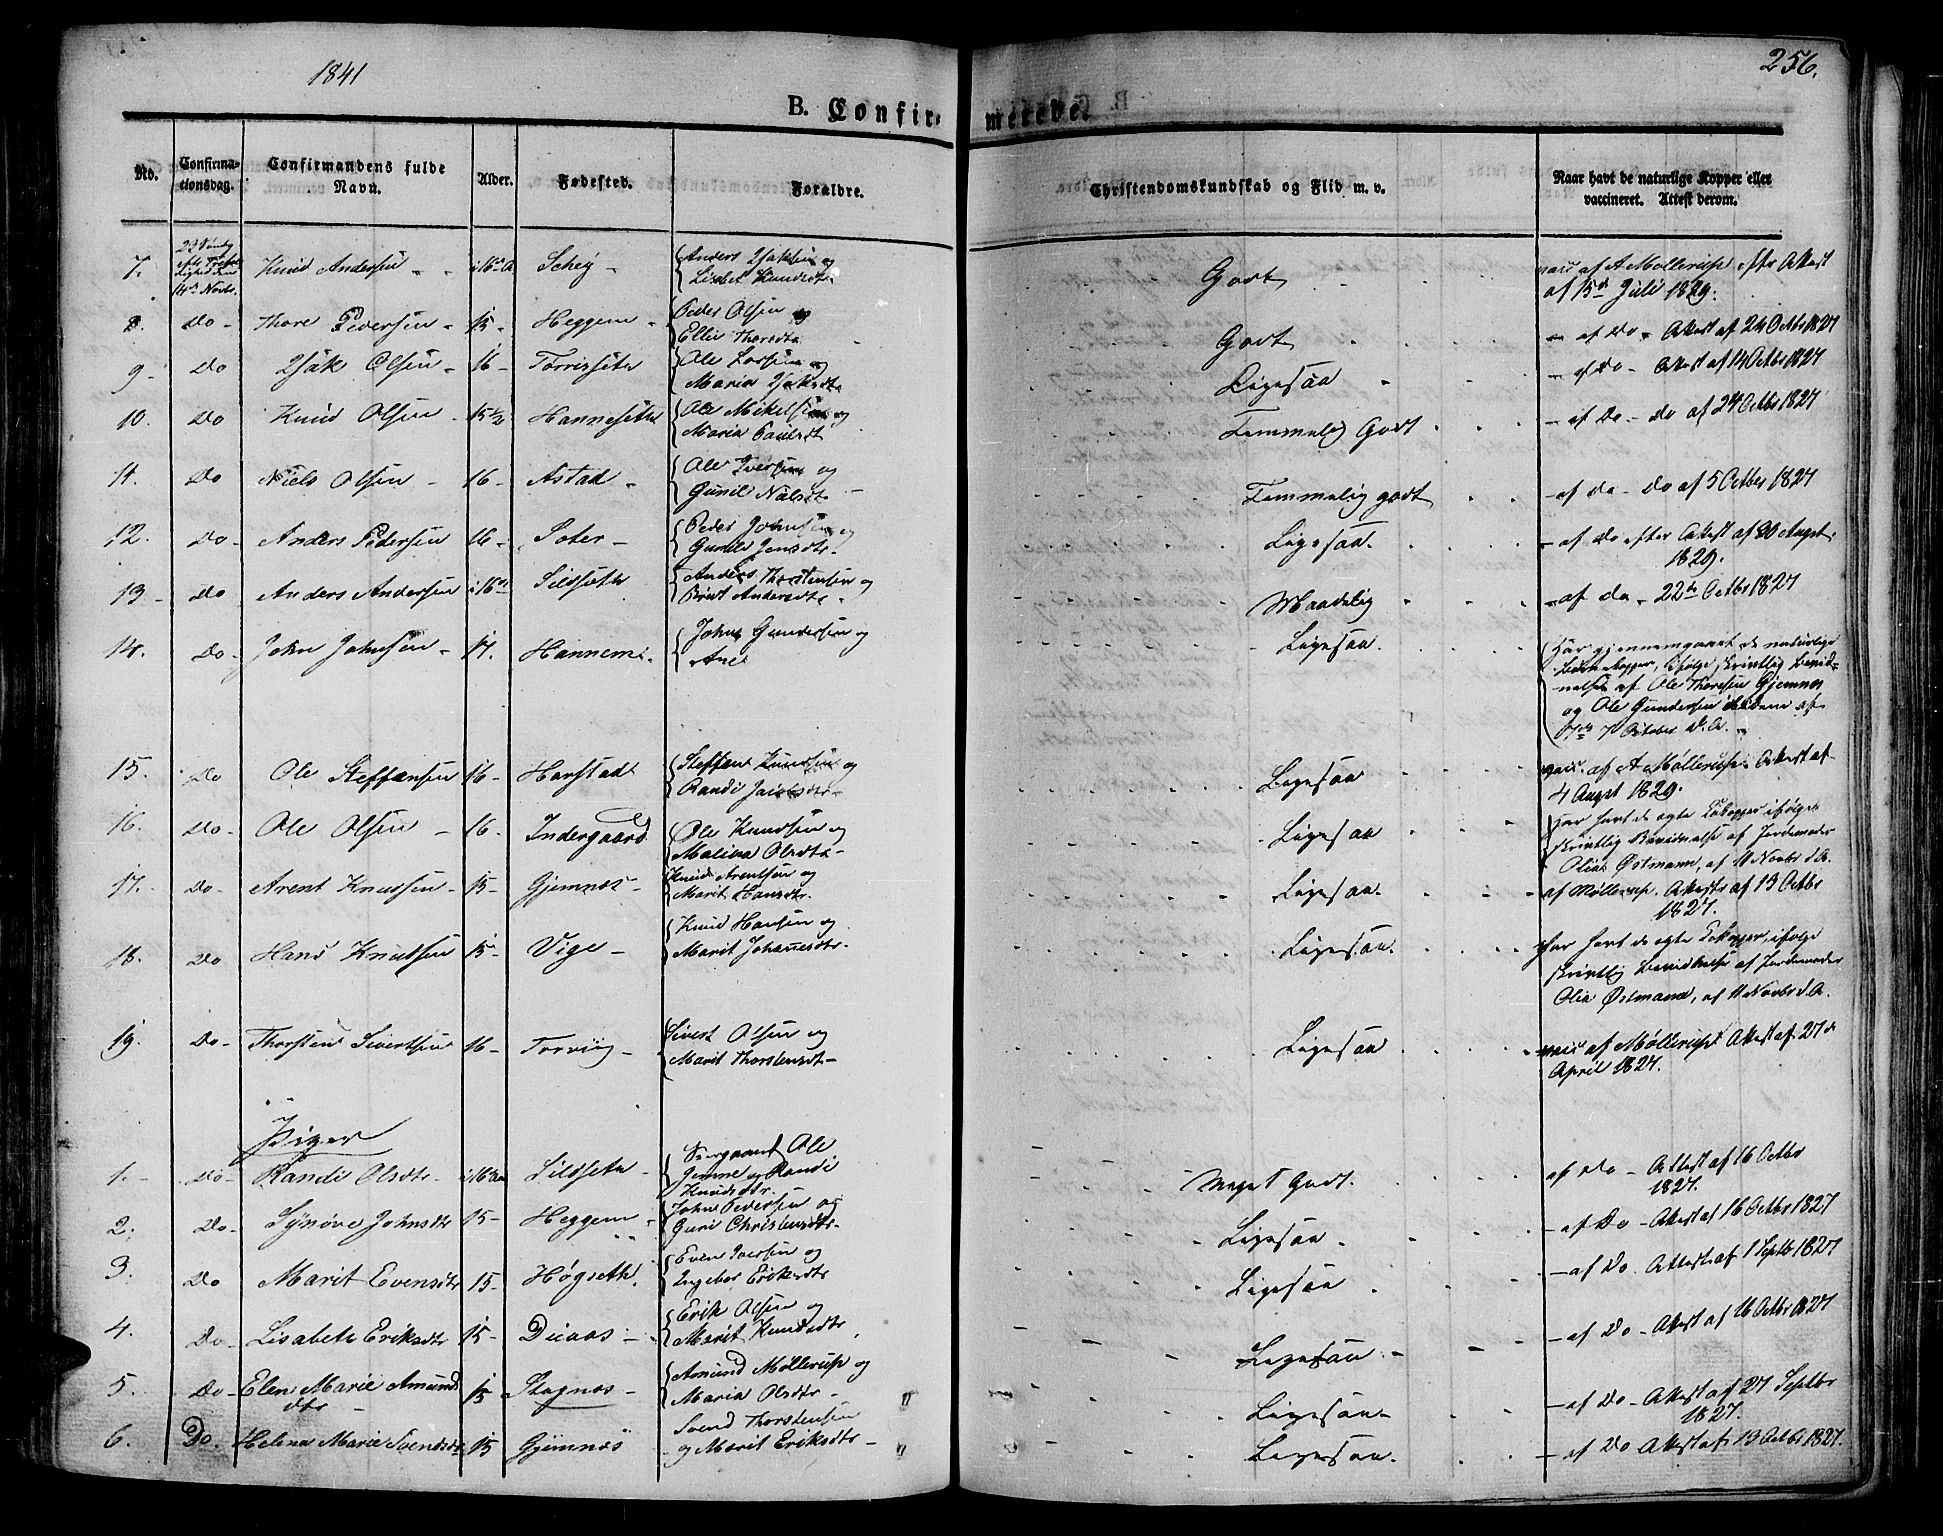 1841
256.
B. Confir= merede.
No. Confirma-tionsdag. Confirmandens fulde Navn. Alder. Fødested. Forældre. Christendomskundskab og Flid m. v. Naar havt de naturlige Kopper eller vaccineret. Attest derom.
7. 14de Novbr. Knud Andersen Anders Isaksen og Lisbet Knudsdtr. Godt af A Møllerup eftr Attest af 15de Juli 1829.
8. Do Thore Pedersen 15 Heggem Peder Olsen og Elli Thorsdtr Godt af Do Attest af 24 Octbr 1827
9 Do Isak Olsen 16 Torrisseter Ole Larsen og Maria Isaksdtr Ligesaa af Do Attest af 14 Octbr 1827
10. Do Knud Olsen 15½ Hanneseth Ole Mikelsen og Maria Paulsdt Temmelig Godt af Do Do af 24 Octbr 1827
11. Do Niels Olsen 16 Astad Ole Iversen og Gunil Nilsdtr Temmelig godt af do Do af 5 Octber 1827
12. Do Anders Pedersen 16 Soter Peder Johnsen og Gunild Jensdtr. Ligesaa. af Do efter Attest af 20 August 1829.
13 Do Anders Andersen 16 Sildseth Anders Thorstensen og Brit Andersdtr Maadelig af do 22de Octbr 1827
14. Do John Johnsen 17. Hannem John Gundersen og Ane Ligesaa. Har gjennemgaaet de naturlige Kopper, ifølge skrivtlig Bevid-nelse af Ole Thoresen Gjemnes og Ole Gundersen af 7 October d. A.
15. Do Ole Steffensen 16 Harstad Steffen Knudsen og Randi Ligesaa vacc. af A Møllerup Attest af 4 August 1829.
16. Do Ole Olsen 16. Indergaard Ole Knudsen og Malina Olsdtr Ligesaa Har havt de egte Kokopper ifølge skrivtlig Bevidnelse af Jordemoder Olia Østmann, af 11 Novbr d. A.
17. Do Arent Knudsen 15 Gjemnes Knud Arentsen og Marit Hansdtr. Ligesaa. af Møllerup. Attest af 13 Octbr 1827.
18. Do Hans Knudsen 15 Vige Knud Hansen og Marit Johannesdtr. Ligesaa. Har havt de egte Kokopper, ifølge skrivtlig Bevidnelse af Jordemoder Olia Østmann, af 11 Novbr d. A.
19. Do Thorsten Sivertsen 16 Torvig Sivert Olsen og Marit Thorstensdtr Ligesaa vacc af Møllerup Attest af 27de April 1827.
Piger
1. Do Randi Olsdtr Sildseth Sergeant Ole Jemne og Randi Knudsdtr. Meget Godt. af do Attest af 16 Octbr 1827.
2. Do Synøve Johnsdtr 15 Heggem John Pedersen og Guri Christensdtr Ligesaa. af Do Attest af 16 Octbr 1827
3. Do Marit Evensdtr 15 Høgseth. Even Iversen og Ingebor Eriksdtr Ligesaa af Do. Attest af 1 Septbr 1827
4. Do Lisabeth Eriksdtr 15 Erik Olsen og Marit Knudsdtr Ligesaa af Do Attest af 16 Octbr 1827
5. Do Elen Marie Amunds dtr 15 Stagnæs Amund Møllerup og Maria Olsdtr Ligesaa af Do Attest af 27 Septbr 1827.
6. Do. Helena Marie Svendsdtr 15 Gjemnes Svend Thorstensen og Marit Eriksdtr Ligesaa. af Do Attest af 13 Octbr 1827.